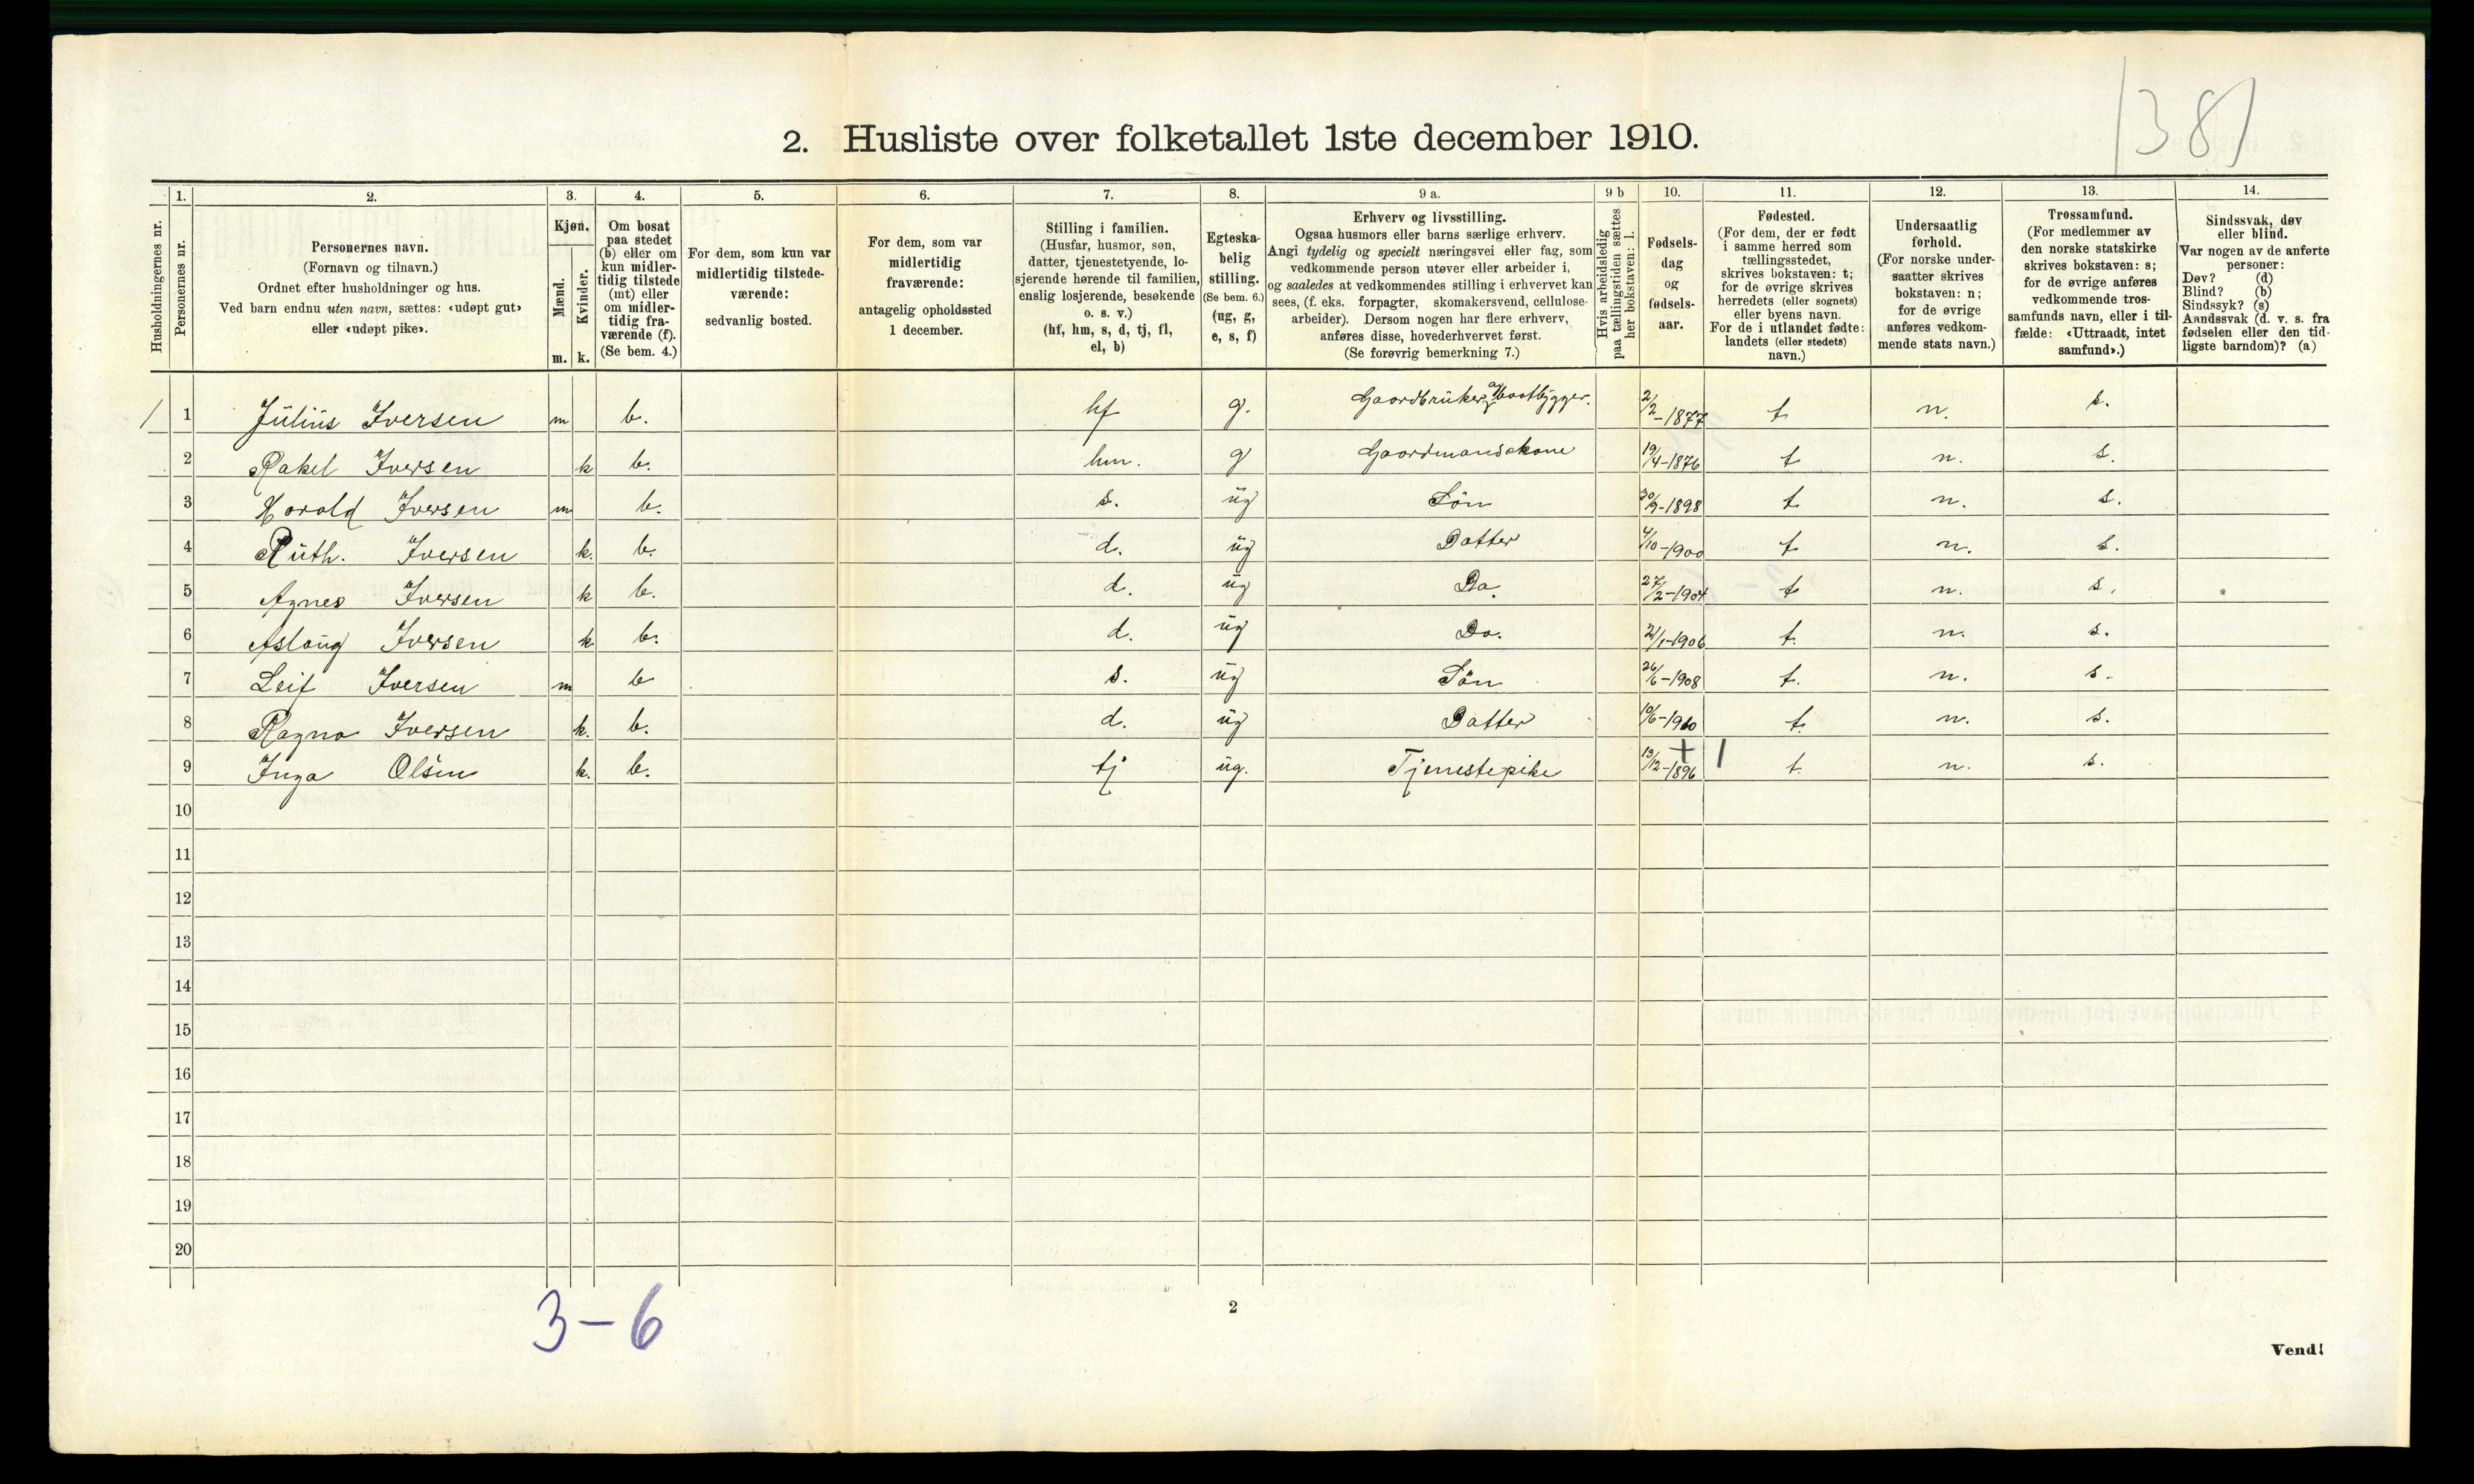 1381
2. Husliste over folketallet 1ste december 1910.
Husholdningernes nr.
1.
Personernes nr.
2.
Personernes navn.
(Fornavn og tilnavn.)
Ordnet efter husholdninger og hus.
Ved barn endnu uten navn, sættes: «udøpt gut»
eller «udøpt pike».
3.
Kjøn.
Mænd.
Kvinder.
m. k.
4.
Om bosat
paa stedet
(b) eller om
kun midler-
tidig tilstede
(mt) eller
om midler-
tidig fra-
værende (f).
(Se bem. 4.)
5.
For dem, som kun var
midlertidig tilstede-
værende:
sedvanlig bosted.
6.
For dem, som var
midlertidig
fraværende:
antagelig opholdssted
1 december.
7.
Stilling i familien.
(Husfar, husmor, søn,
datter, tjenestetyende, lo-
sjerende hørende til familien,
enslig losjerende, besøkende
o. s. v.)
(hf, hm, s, d, tj, fl,
el, b)
8.
Egteska-
belig
stilling.
(Se bem. 6.)
(ug, g,
e, s, f)
9 a.
Erhverv og livsstilling.
Ogsaa husmors eller barns særlige erhverv.
Angi tydelig og specielt næringsvei eller fag, som
vedkommende person utøver eller arbeider i,
og saaledes at vedkommendes stilling i erhvervet kan
sees, (f. eks. forpagter, skomakersvend, cellulose-
arbeider). Dersom nogen har flere erhverv,
anføres disse, hovederhvervet først.
(Se forøvrig bemerkning 7.)
9 b
Hvis arbeidsledig
paa tællingstiden sættes
her bokstaven: l.
10.
Fødsels-
dag
og
fødsels-
aar.
11.
Fødested.
(For dem, der er født
i samme herred som
tællingsstedet,
skrives bokstaven: t;
for de øvrige skrives
herredets (eller sognets)
eller byens navn.
For de i utlandet fødte:
landets (eller stedets)
navn.)
12.
Undersaatlig
forhold.
(For norske under-
saatter skrives
bokstaven: n;
for de øvrige
anføres vedkom-
mende stats navn.)
13.
Trossamfund.
(For medlemmer av
den norske statskirke
skrives bokstaven: s;
for de øvrige anføres
vedkommende tros-
samfunds navn, eller i til-
fælde: «Uttraadt, intet
samfund».)
14.
Sindssvak, døv
eller blind.
Var nogen av de anførte
personer:
Døv? (d)
Blind? (b)
Sindssyk? (s)
Aandssvak (d. v. s. fra
fødselen eller den tid-
ligste barndom)? (a)
1 Julius Iversen m b. hf g. Gaardbruker og Baatbygger. 2/2-1877 t n. s.
2 Rakel Iversen k b. hm. g Gaardmandskone 19/4-1876 t n. s.
3 Harald Iversen m b. s. ug Søn 30/9-1898 t n. s.
4 Ruth. Iversen k. b. d. ug Datter 4/10-1900 t n. s.
5 Agnes Iversen k b. d. ug Do. 27/2-1904 t n. s.
6 Aslaug Iversen k b. d. ug Do. 21/1-1906 t. n. s.
7 Leif Iversen m b s. ug Søn 26/6-1908 t. n. s.
8 Ragna Iversen k. b. d. ug Datter 10/6-1910 t. n. s.
9 Inga Olsen k. b. tj ug. Tjenestepike 13/12-1896 + 1 t. n. s.
10
11
12
13
14
15
16
17
18
19
20
3-6
2
Vend!